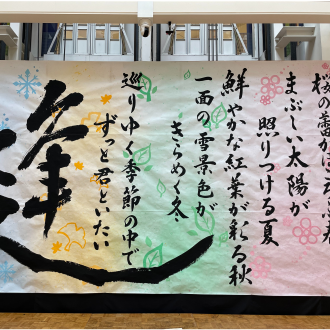 桜の蕾が春
まぶしい太陽が
照りつける夏
鮮やかな紅葉が彩る秋
一面の雪景色が
きらめく冬
巡りゆく季節の中で
ずっと君といたい
逢